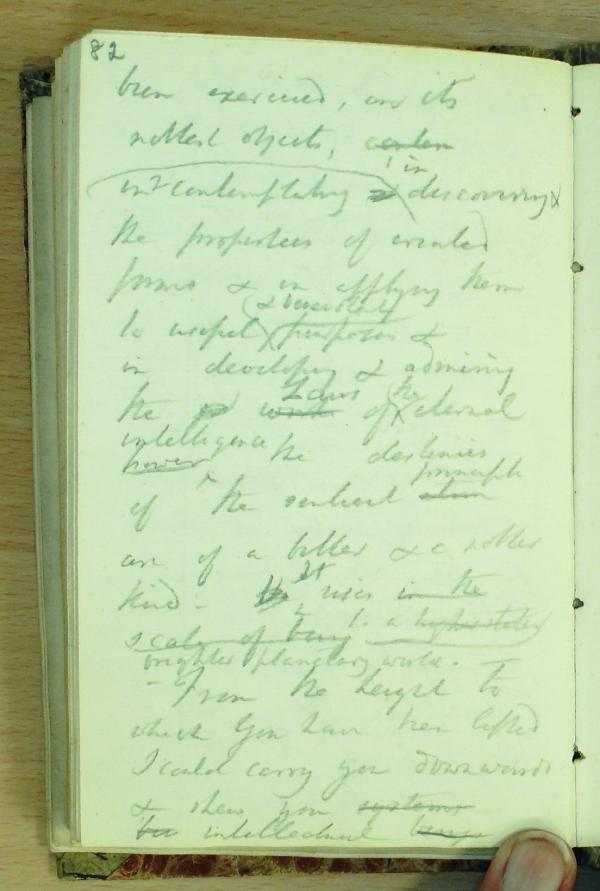 82
been exercised, on its
noblest objects,
in
in contemplating & discovering
the properties of created
forms & in applying them
& 
to useful purposes &
in developing & admiring
Laws the
the works of eternal
intelligence
power the destinies
principle
of the sentient
are of a better & a nobler
kind. It rises in the
scale of being to a higher state
brighter planetary world.
- From the height to
which You have been lifted
I could carry you downwards
& shew you systems
intellectual beings